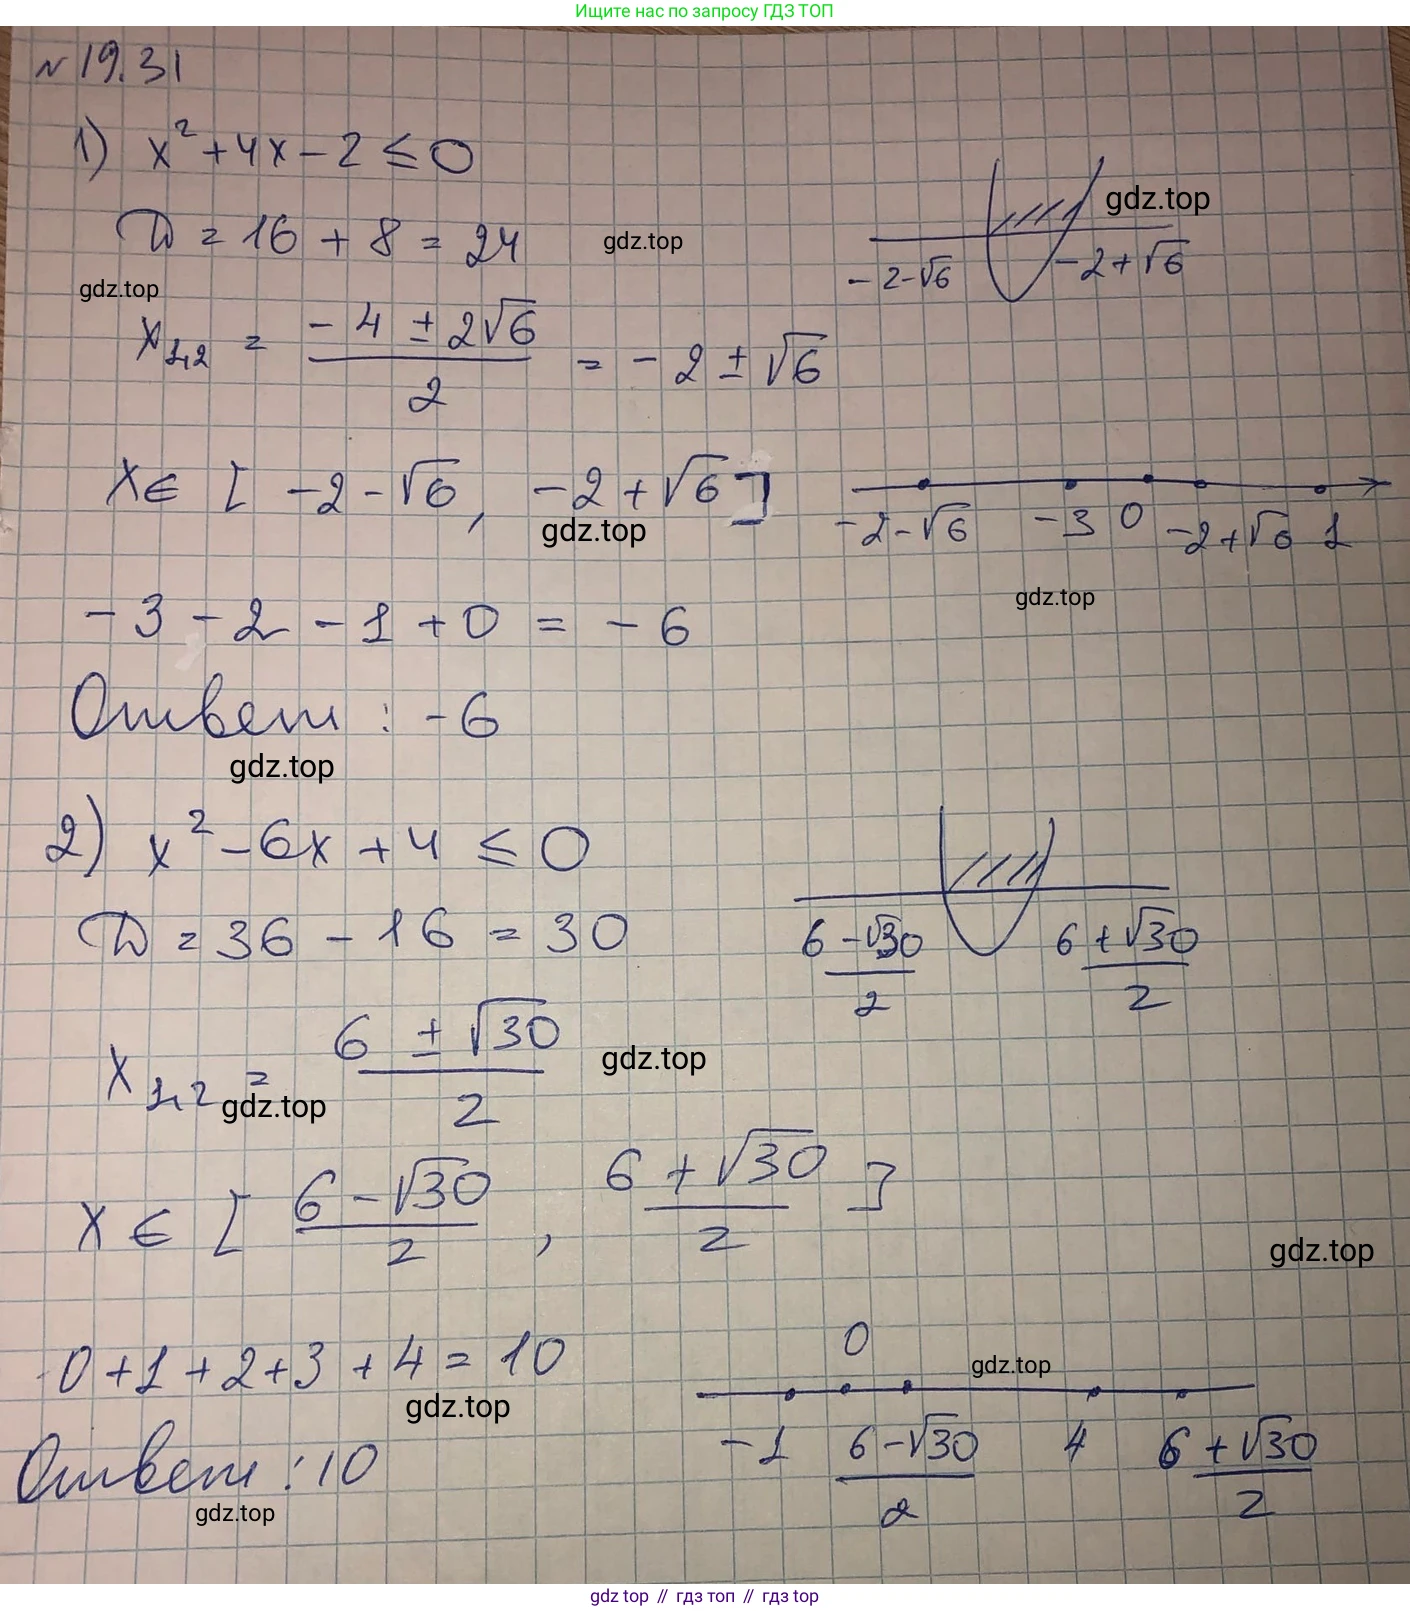 Ищите нас по запросу ГДЗ ТОП
№19.31
1) x² + 4x - 2 ≤ 0
D = 16 + 8 = 24
gdz.top
gdz.top
-2-√6
-2+√6
gdz.top
x₁,₂ = (-4 ± 2√6)/2 = -2 ± √6
x∈ [ -2-√6, -2+√6 ]
gdz.top
-2-√6 -3 0 -2+√6 1
gdz.top
-3 - 2 - 1 + 0 = -6
Ответ: -6
gdz.top
2) x² - 6x + 4 ≤ 0
D = 36 - 16 = 30
(6-√30)/2
(6+√30)/2
x₁,₂ = (6 ± √30)/2
gdz.top
gdz.top
x ∈ [ (6-√30)/2, (6+√30)/2 ]
gdz.top
0+1+2+3+4 = 10
gdz.top
0
gdz.top
-1 (6-√30)/2 4 (6+√30)/2
Ответ: 10
gdz.top
gdz.top // гдз топ // gdz.top